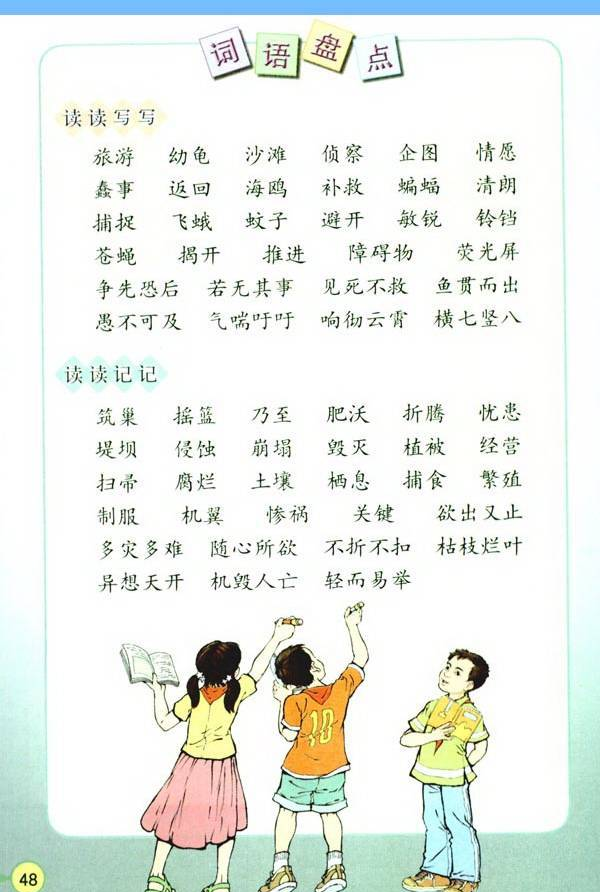 词语盘点
读读写写
旅游 幼龟 沙滩 侦察 企图 情愿
蠢事 返回 海鸥 补救 蝙蝠 清朗
捕捉 飞蛾 蚊子 避开 敏锐 铃铛
苍蝇 揭开 推进 障碍物 荧光屏
争先恐后 若无其事 见死不救 鱼贯而出
愚不可及 气喘吁吁 响彻云霄 横七竖八
读读记记
筑巢 摇篮 乃至 肥沃 折腾 忧患
堤坝 侵蚀 崩塌 毁灭 植被 经营
扫帚 腐烂 土壤 栖息 捕食 繁殖
制服 机翼 惨祸 关键 欲出又止
多灾多难 随心所欲 不折不扣 枯枝烂叶
异想天开 机毁人亡 轻而易举
10
48